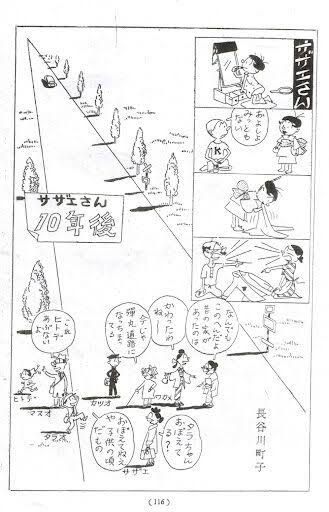 サザエさん
およしよ
みっとも
ない
K
サザエさん
10年後
なんでも
このへんだよ
昔の家が
あったのは
かわったわ
ねー
今じゃ
弾丸道路に
なっちまっ
てる
これ
ヒトデ
あぶない
よ
タラちゃん
おぼえて
る?
おぼえてねえ
や子供の頃
だもの
ヒトデ
マスオ
タラオ
カツオ
ワカメ
サザエ
長谷川町子
(116)